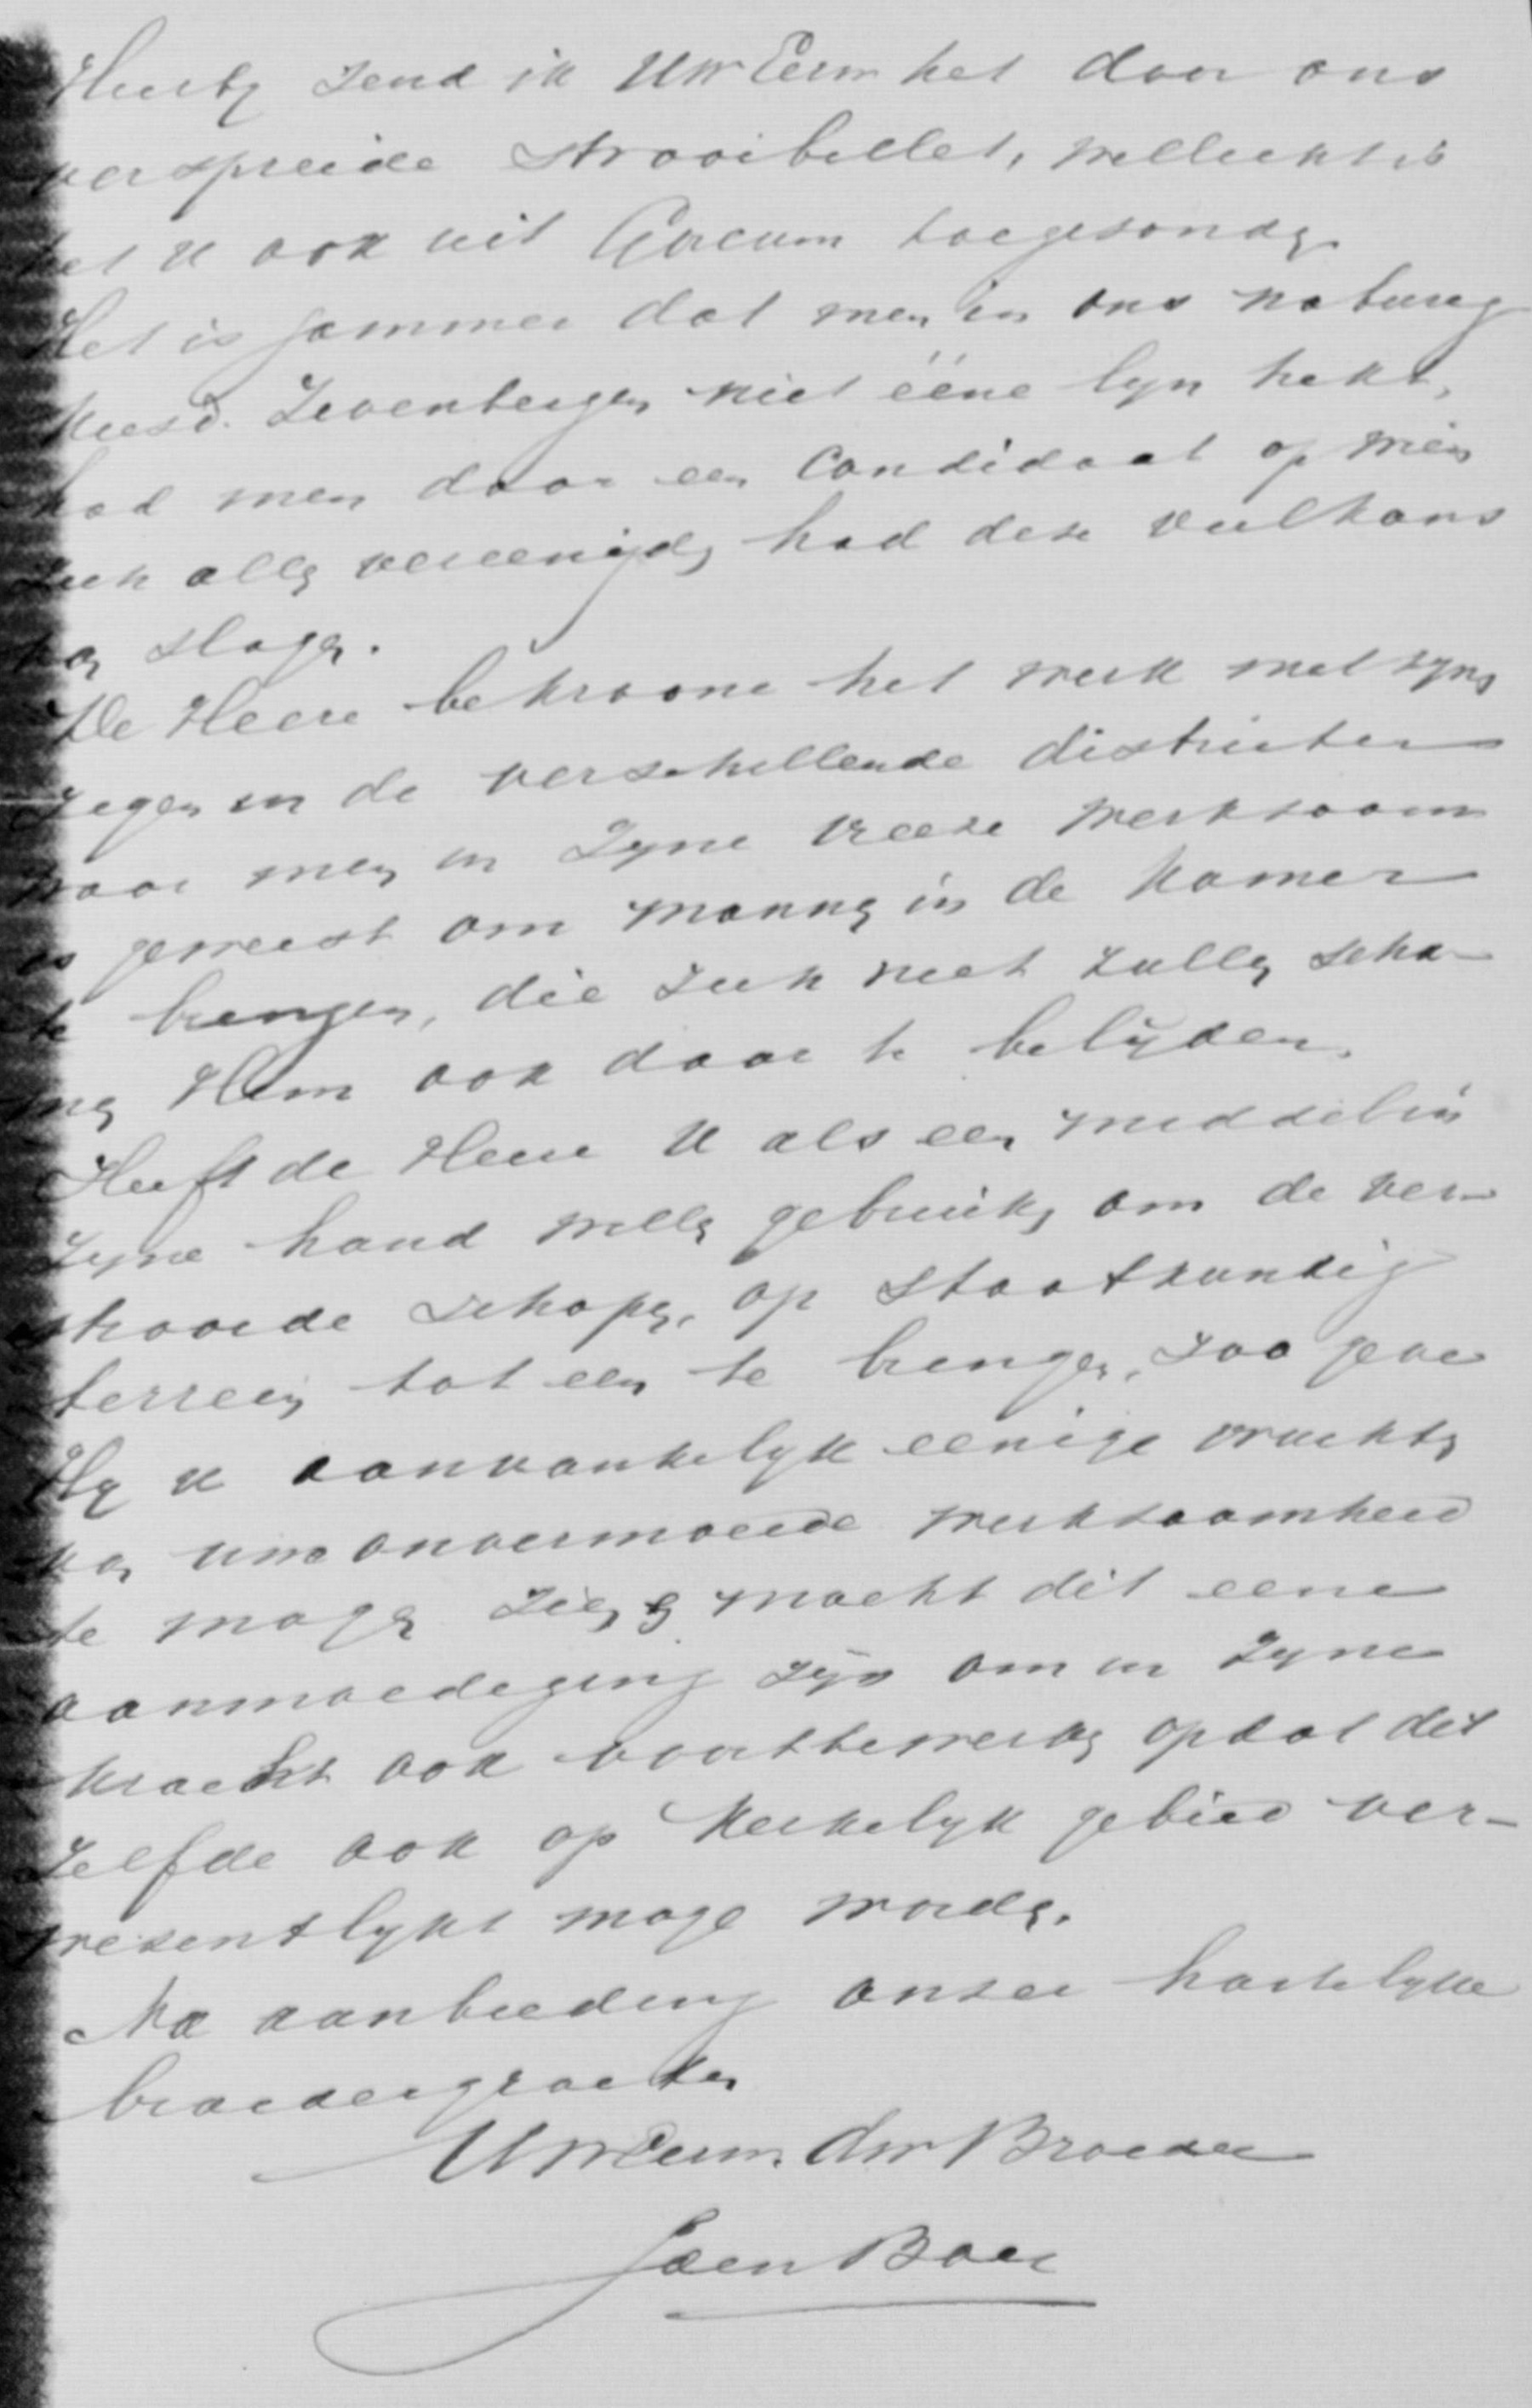 Hierbij zend ik UwEerw het door ons
verspreide strooibillet, wellicht is
het U ook uit Gorcum toegezonden.
Het is jammer dat men in ons naburig
kiesd. Zevenbergen niet ééne lijn trekt,
had men daar een Candidaat op wien
zich allen vereenigden had deze veel kans
van slagen.
De Heere bekroone het werk met zijn
zegen in de verschillende districten
waar men in Zijne vreeze werkzaam
is geweest om mannen in de Kamer
te brengen, die zich niet zullen scha-
men Hem ook daar te belijden.
Heeft de Heere U als een middel in
Zijne hand willen gebruiken om de ver-
strooide schapen, op staatkundig
terrein tot een te brengen, zoo geve
Hij U aanvankelijk eenige vruchten
van uwe onvermoeide werkzaamheid
te mogen zien, & mocht dit eene
aanmoediging zijn om in Zijne
kracht ook voort te werken opdat dit
zelfde ook op Kerkelijk gebied ver-
wezentlijkt moge worden.
Na aanbieding onzer hartelijke
broedergroeten
UwEerw. dw Broeder
J den Boer